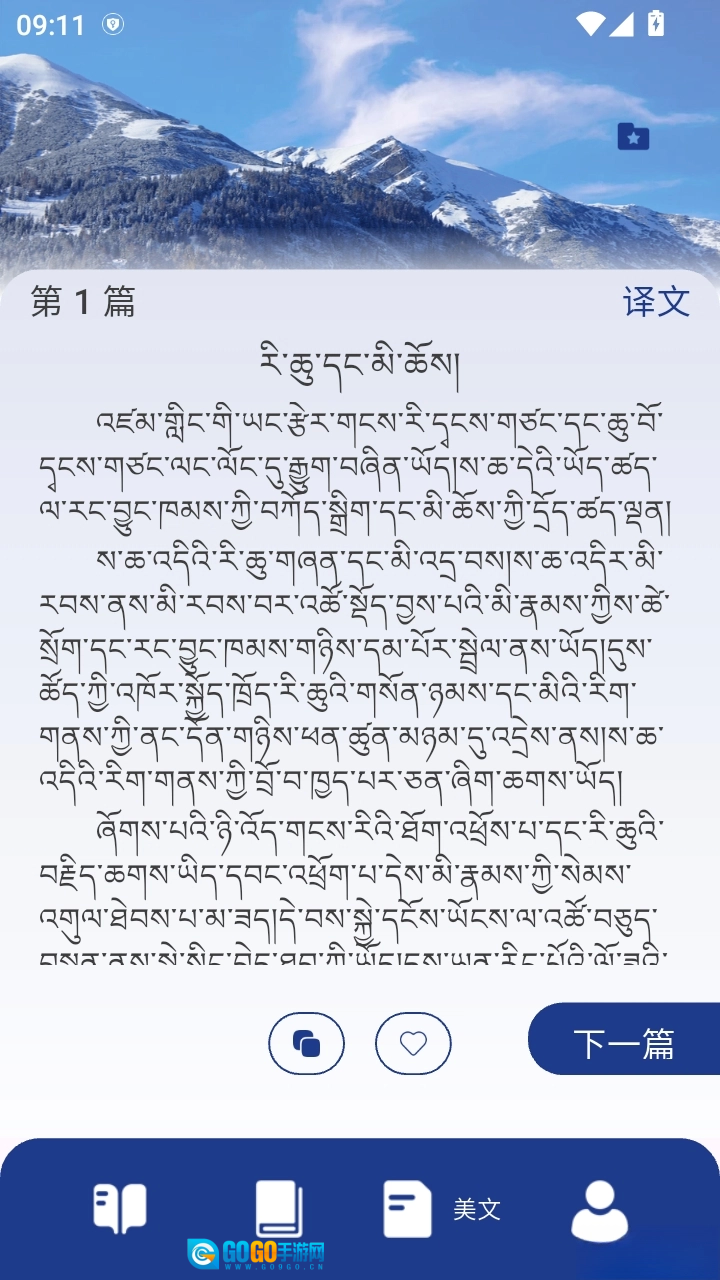 09:11
第 1 篇
译文
རི་ཆུ་དང་མི་ཆོས།
འཛམ་གླིང་གི་ཡང་རྩེར་གངས་རི་དྭངས་གཙང་དང་ཆུ་བོ་
དྭངས་གཙང་ལང་ལོང་དུ་རྒྱུག་བཞིན་ཡོད།ས་ཆ་དེའི་ཡོད་ཚད་
ལ་རང་བྱུང་ཁམས་ཀྱི་བཀོད་སྒྲིག་དང་མི་ཆོས་ཀྱི་དྲོད་ཚད་ལྡན།
ས་ཆ་འདིའི་རི་ཆུ་གཞན་དང་མི་འདྲ་བས།ས་ཆ་འདིར་མི་
རབས་ནས་མི་རབས་བར་འཚོ་སྡོད་བྱས་པའི་མི་རྣམས་ཀྱིས་ཚེ་
སྲོག་དང་རང་བྱུང་ཁམས་གཉིས་དམ་པོར་སྦྲེལ་ནས་ཡོད།དུས་
ཚོད་ཀྱི་འཁོར་སྐྱོད་ཁྲོད་རི་ཆུའི་གསོན་ཉམས་དང་མིའི་རིག་
གནས་ཀྱི་ནང་དོན་གཉིས་ཕན་ཚུན་མཉམ་དུ་འདྲེས་ནས།ས་ཆ་
འདིའི་རིག་གནས་ཀྱི་བྲོ་བ་ཁྱད་པར་ཅན་ཞིག་ཆགས་ཡོད།
ཞོགས་པའི་ཉི་འོད་གངས་རིའི་ཐོག་འཕྲོས་པ་དང་རི་ཆུའི་
བརྗིད་ཆགས་ཡིད་དབང་འཕྲོག་པ་དེས་མི་རྣམས་ཀྱི་སེམས་
འགུལ་ཐེབས་པ་མ་ཟད།དེ་བས་སྐྱེ་དངོས་ཡོངས་ལ་འཚོ་བཅུད་
下一篇
美文
GOGO手游网
WWW.GO9GO.CN